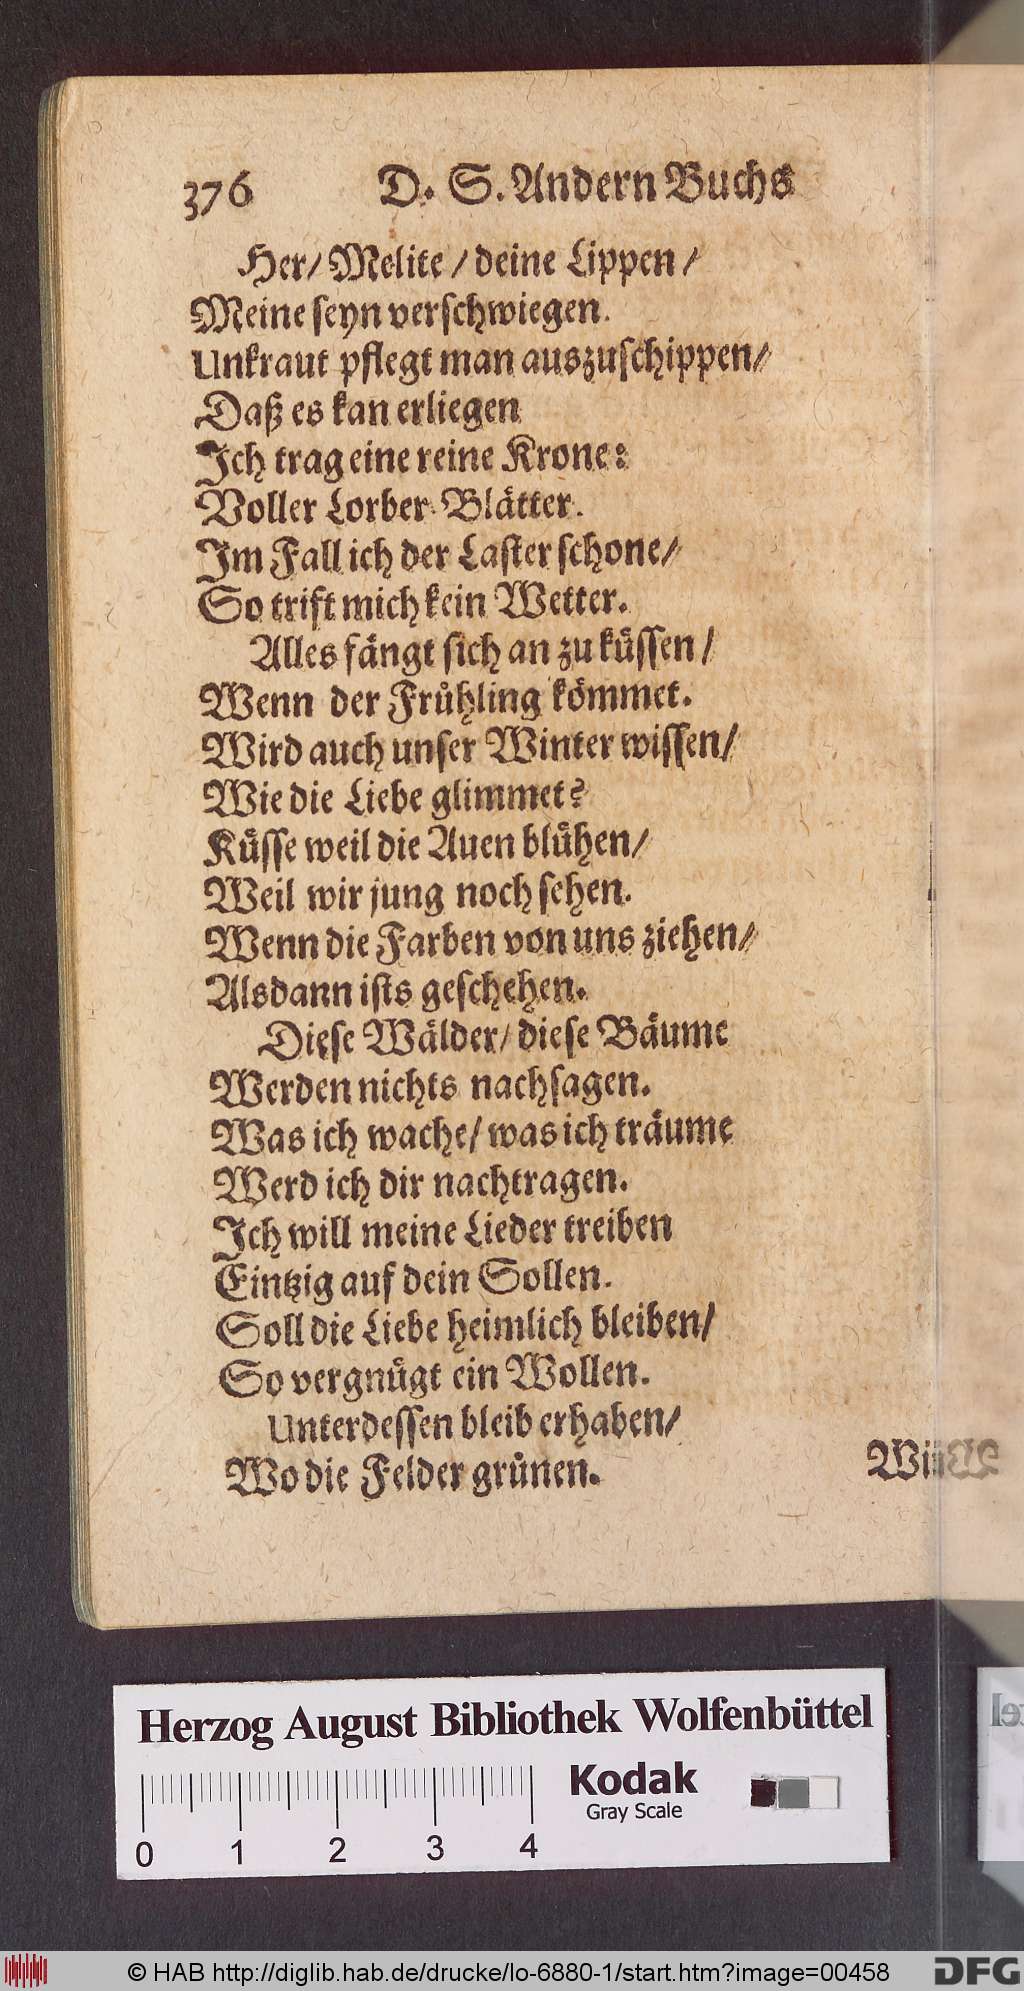 376 D. S. Andern Buchs
Her/ Melite / deine Lippen /
Meine seyn verschwiegen.
Unkraut pflegt man auszuschippen/
Daß es kan erliegen
Ich trag eine reine Krone:
Voller Lorber-Blätter.
Im Fall ich der Laster schone/
So trift mich kein Wetter.
Alles fängt sich an zu küssen /
Wenn der Frühling kömmet.
Wird auch unser Winter wissen/
Wie die Liebe glimmet?
Küsse weil die Auen blühen/
Weil wir jung noch sehen.
Wenn die Farben von uns ziehen/
Alsdann ists geschehen.
Diese Wälder/ diese Bäume
Werden nichts nachsagen.
Was ich wache/ was ich träume
Werd ich dir nachtragen.
Ich will meine Lieder treiben
Eintzig auf dein Sollen.
Soll die Liebe heimlich bleiben/
So vergnügt ein Wollen.
Unterdessen bleib erhaben/
Wo die Felder grünen.
Herzog August Bibliothek Wolfenbüttel
Kodak
Gray Scale
0 1 2 3 4
© HAB http://diglib.hab.de/drucke/lo-6880-1/start.htm?image=00458
DFG